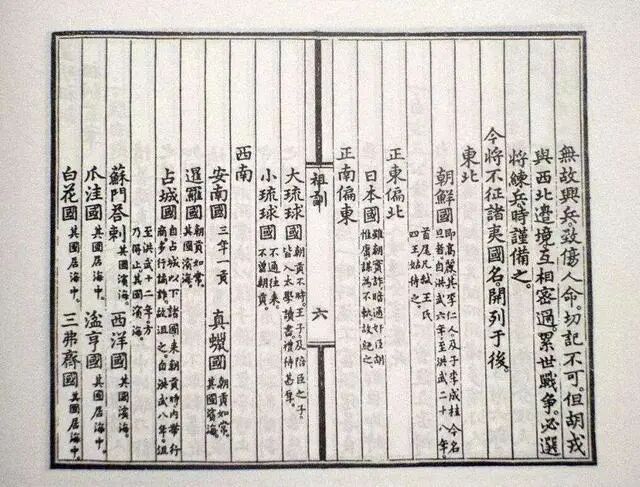 無故興兵。致傷人命。切記不可。但胡戎
與西北邊境。互相密邇。累世戰爭。必選
將練兵。時謹備之。
今將不征諸夷國名。開列于後。
東北
朝鮮國 即高麗。其李仁人。及子李成桂今名
旦者。自洪武六年。至洪武二十八年。
首尾凡弒王氏
四王。姑待之。
正東偏北
日本國 雖朝實詐。暗通奸臣胡
惟庸。謀為不軌。故絕之。
正南偏東
祖訓 六
大琉球國 朝貢不時。王子及陪臣之子。
皆入太學讀書。禮待甚厚。
小琉球國 不通往來。
不曾朝貢。
西南
安南國 三年一貢 真蠟國 朝貢如常。
其國濱海。
暹羅國 朝貢如常。
其國濱海。
占城國 自占城以下諸國來朝貢時。內帶行
商。多行譎詐。故沮之。自洪武八年。沮
至洪武十二年。方
乃得止。其國濱海。
蘇門荅剌 其國濱海。 西洋國 其國濱海。
爪洼國 其國居海中。 湓亨國 其國居海中。
白花國 其國居海中。 三弗齊國 其國居海中。